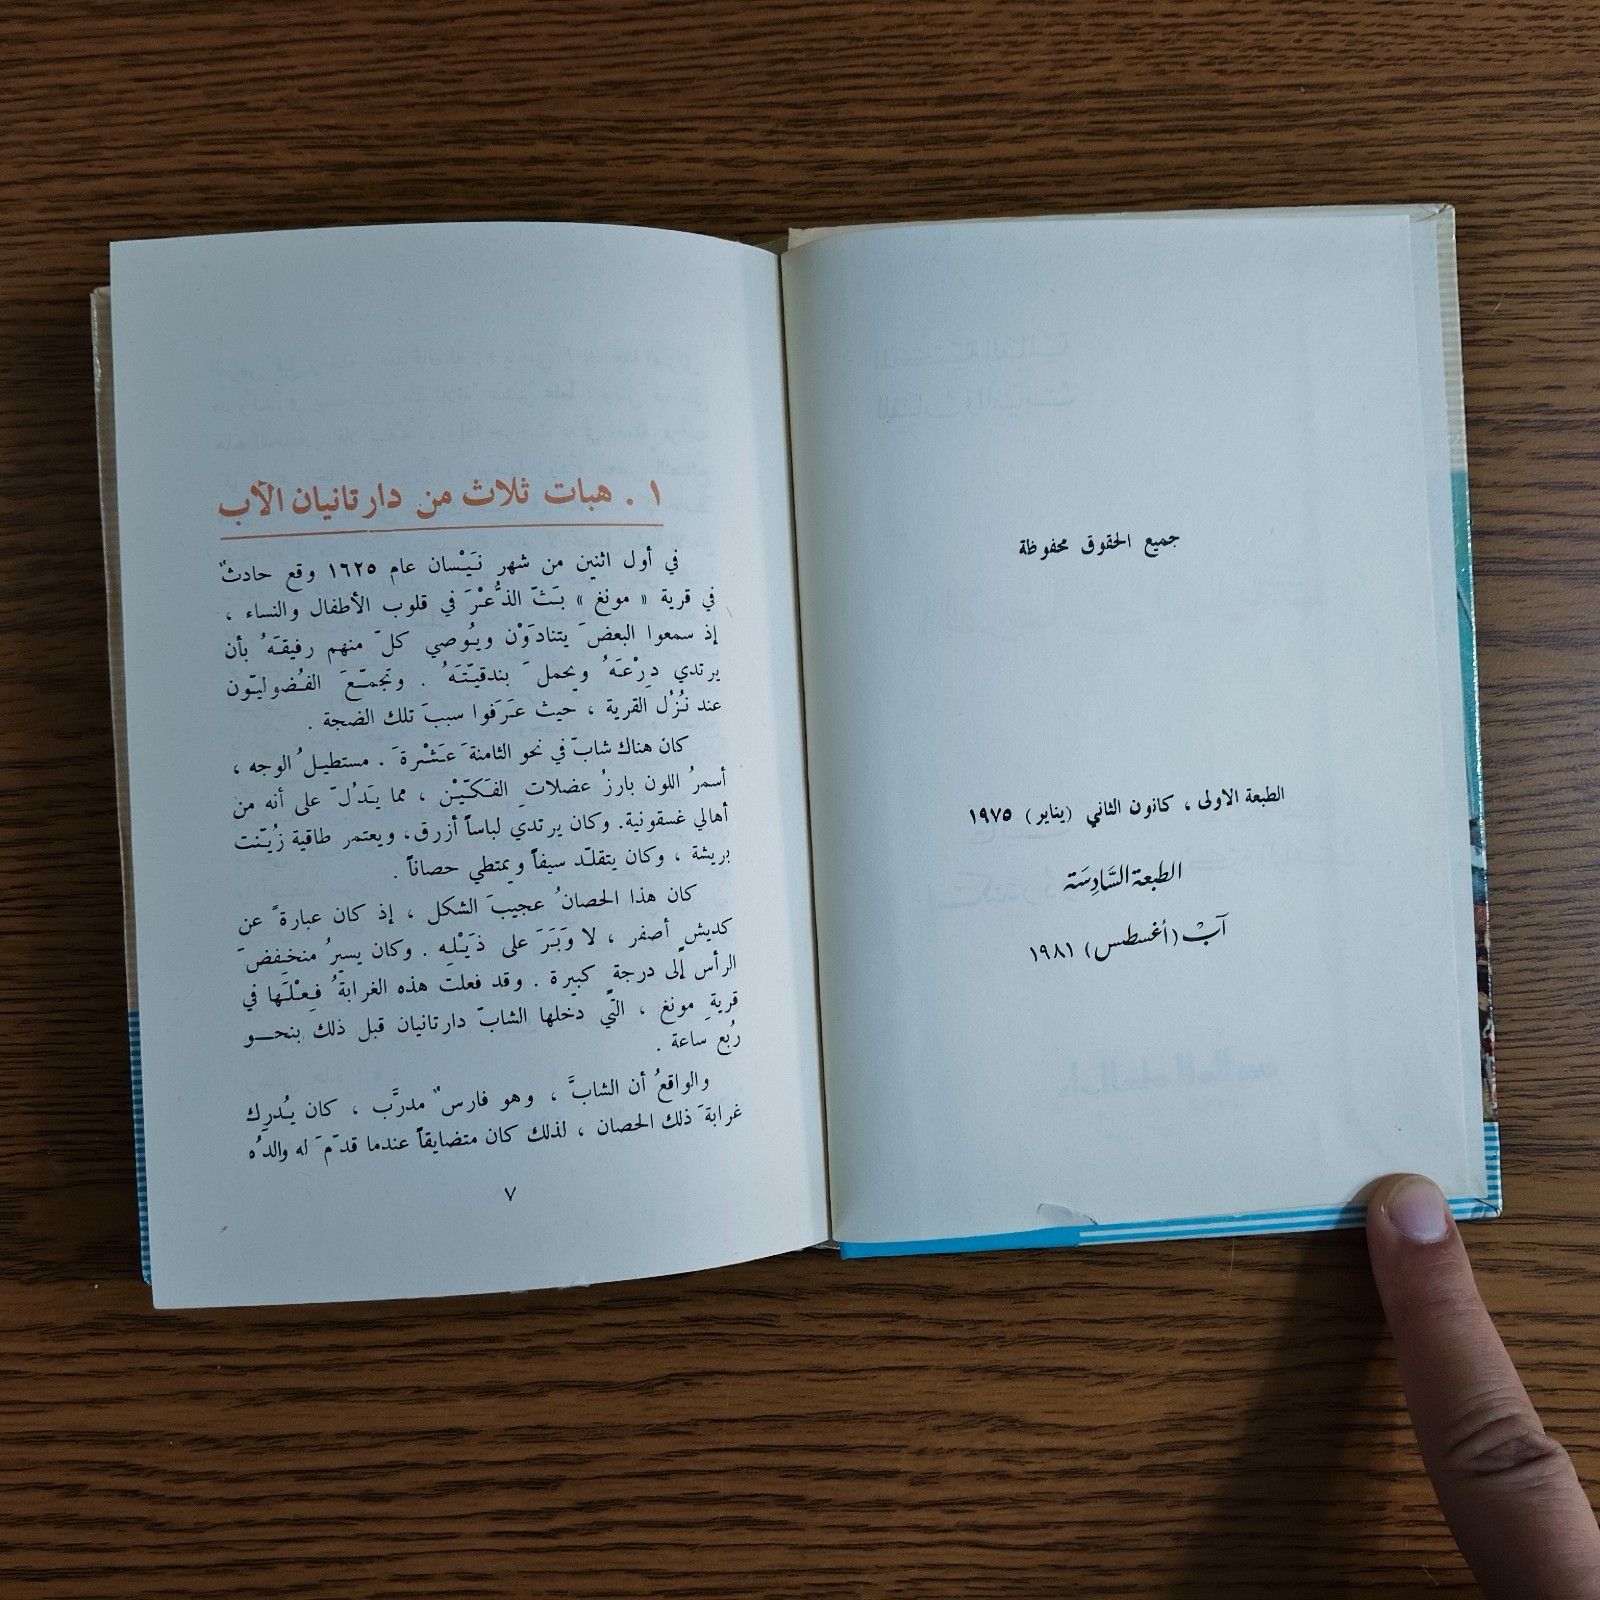 جميع الحقوق محفوظة
الطبعة الاولى ، كانون الثاني (يناير) ١٩٧٥
الطبعة السَّادِسَة
آبْ (أغسطس) ١٩٨١
١ . هبات ثلاث من دارتانيان الآب
في أول اثنين من شهر نَيْسان عام ١٦٢٥ وقع حادثٌ
في قرية « مونغ » بَثّ الذُّعْرَ في قلوب الأطفال والنساء ،
إذ سمعوا البعضَ يتنادَوْن ويُوصي كلّ منهم رفيقَهُ بأن
يرتدي دِرْعَهُ ويحملَ بندقيّتَهُ . وتجمّعَ الفُضوليّون
عند نُزُل القرية ، حيث عَرَفوا سببَ تلك الضجة .
كان هناك شابّ في نحو الثامنةَ عَشْرةَ . مستطيلُ الوجه ،
أسمرُ اللون بارزُ عضلاتِ الفَكّيْن ، مما يَدُلّ على أنه من
أهالي غسقونية. وكان يرتدي لباساً أزرق، ويعتمر طاقية زُيّنت
بريشة ، وكان يتقلّد سيفاً ويمتطي حصاناً .
كان هذا الحصانُ عجيبَ الشكل ، إذ كان عبارةً عن
كديشٍ أصفر ، لا وَبَرَ على ذَيْلِه . وكان يسيرُ منخفِضَ
الرأس إلى درجةٍ كبيرة . وقد فعلت هذه الغرابةُ فِعْلَها في
قريةِ مونغ ، التي دخلها الشابّ دارتانيان قبل ذلك بنحو
رُبع ساعة .
والواقعُ أن الشابَّ ، وهو فارسٌ مدرَّب ، كان يُدرِك
غرابةَ ذلك الحصان ، لذلك كان متضايقاً عندما قدّمَ له والدُه
٧